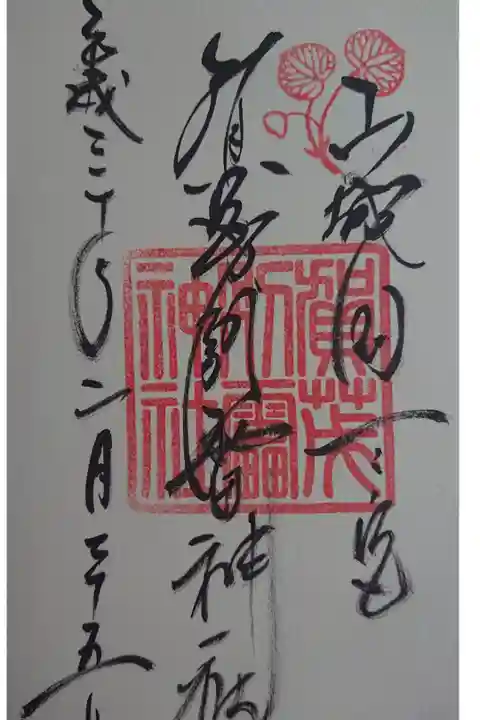 山城国一之宮
賀茂別雷神社
平成三十年二月二十五
賀茂
別雷
神社